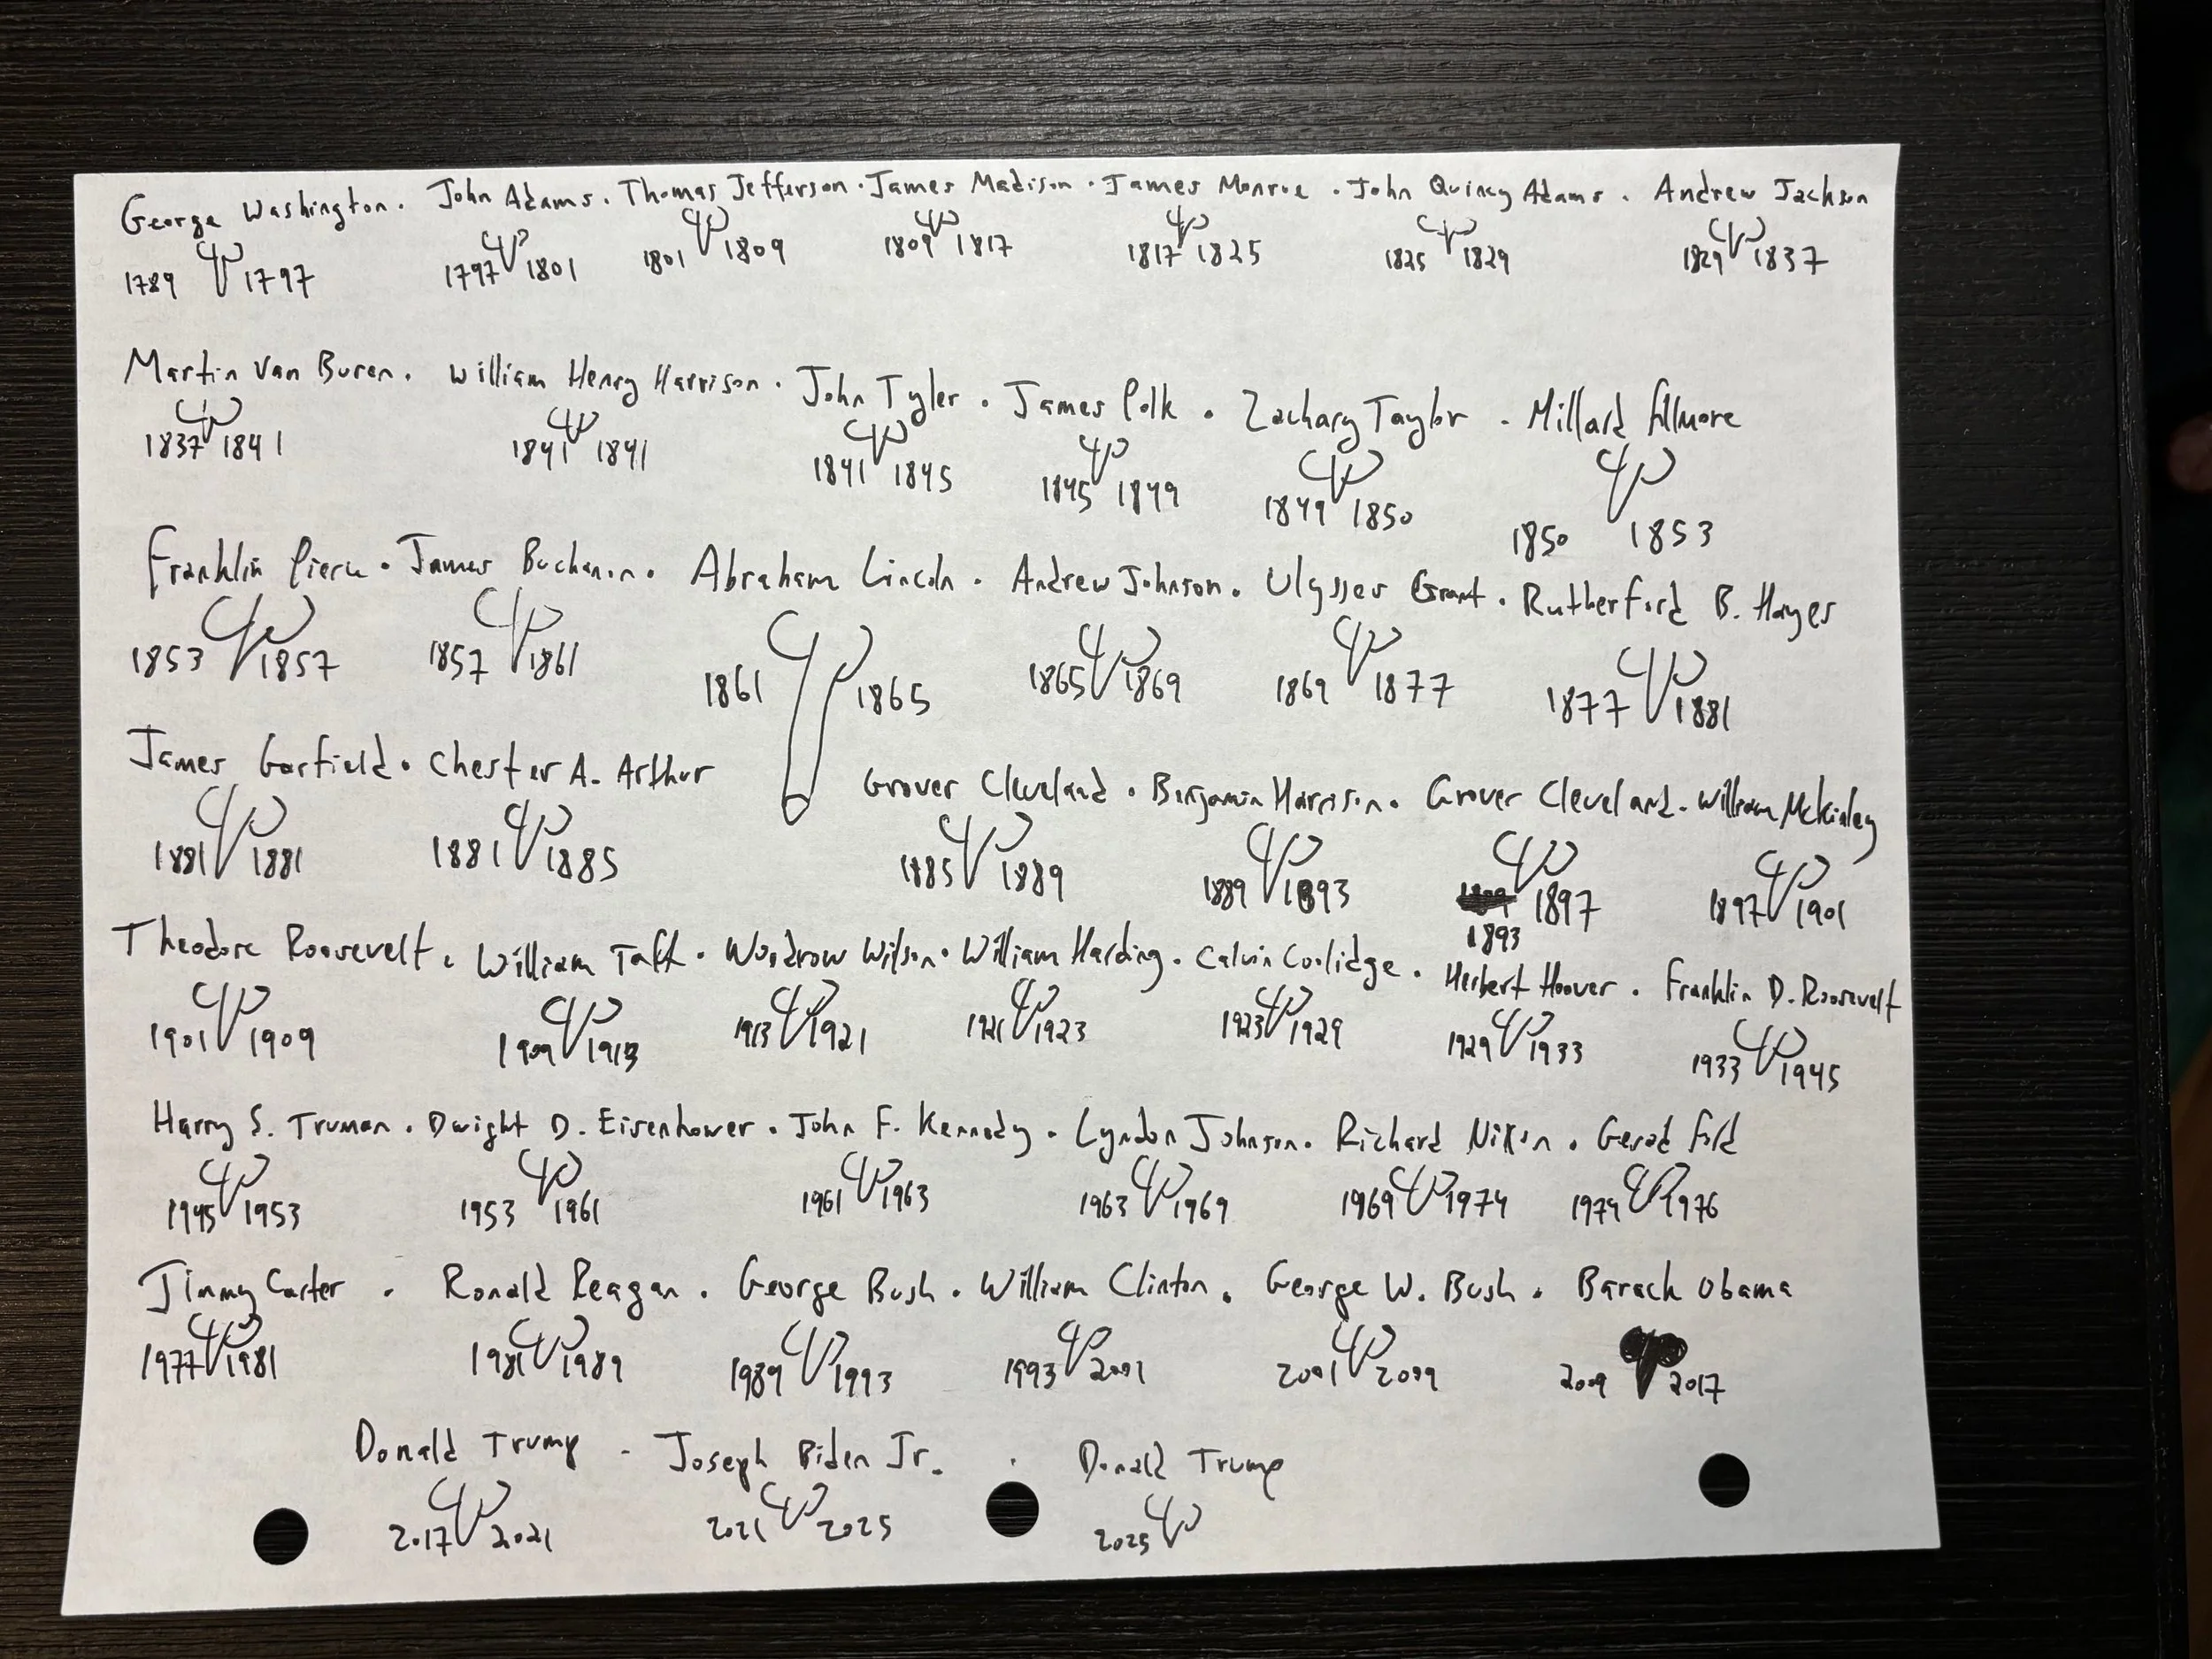 George Washington. John Adams. Thomas Jefferson. James Madison. James Monroe. John Quincy Adams. Andrew Jackson
1789 1797 1797 1801 1801 1809 1809 1817 1817 1825 1825 1829 1829 1837
Martin Van Buren. William Henry Harrison. John Tyler. James Polk. Zachary Taylor. Millard fillmore
1837 1841 1841 1841 1841 1845 1845 1849 1849 1850 1850 1853
Franklin Pierce. James Buchanan. Abraham Lincoln. Andrew Johnson. Ulysses Grant. Rutherford B. Hayes
1853 1857 1857 1861 1861 1865 1865 1869 1869 1877 1877 1881
James Garfield. Chester A. Arthur Grover Cleveland. Benjamin Harrison. Grover Cleveland. William McKinley
1881 1881 1881 1885 1885 1889 1889 1893 1897 1897 1901
1893
Theodore Roosevelt. William Taft. Woodrow Wilson. William Harding. Calvin Coolidge. Herbert Hoover. Franklin D. Roosevelt
1901 1909 1909 1913 1913 1921 1921 1923 1923 1929 1929 1933 1933 1945
Harry S. Truman. Dwight D. Eisenhower. John F. Kennedy. Lyndon Johnson. Richard Nixon. Gerad ford
1945 1953 1953 1961 1961 1963 1963 1969 1969 1974 1974 1976
Jimmy Carter. Ronald Reagan. George Bush. William Clinton. George W. Bush. Barack Obama
1977 1981 1981 1989 1989 1993 1993 2001 2001 2009 2009 2017
Donald Trump. Joseph Biden Jr. . Donald Trump
2017 2021 2021 2025 2025